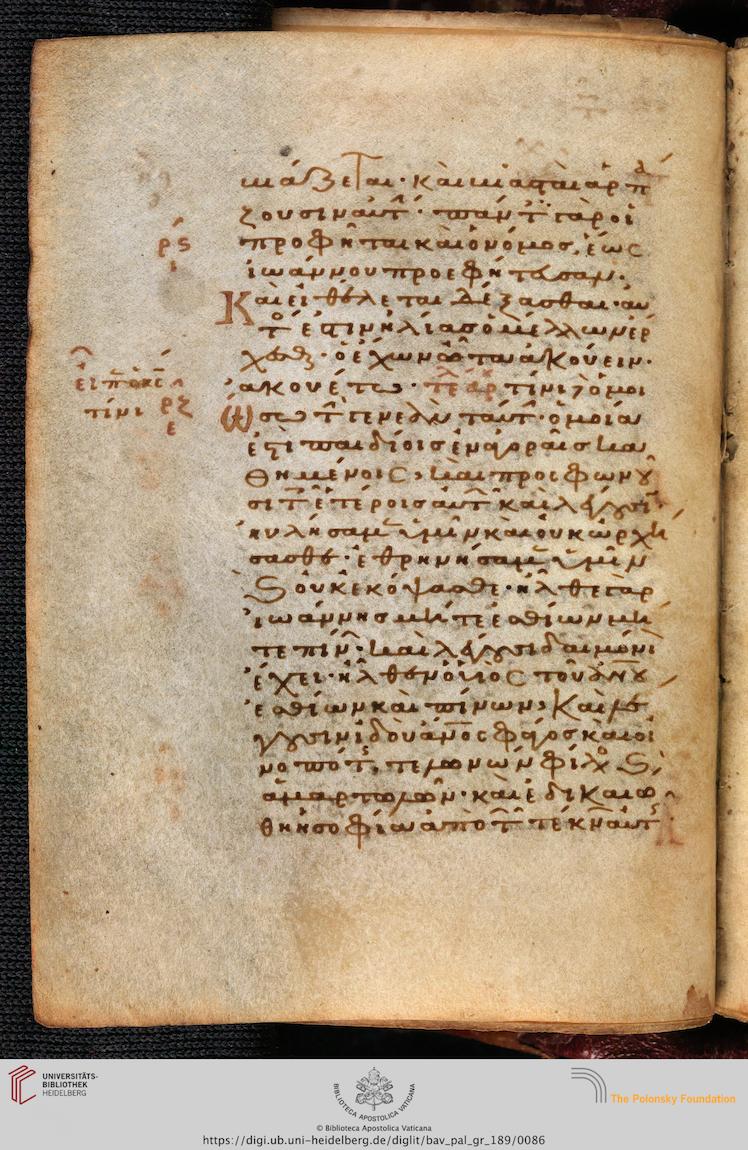 ιάζεται· και βιασται αρπ
ζουσιν αυτ· παντ γαρ οι
προφηται και ο νομος, έως
ϊωάννου προεφητευσαν·
Και ει θέλεται δέξασθαι· αυ
τ εστιν ηλίας ο μέλλων έρ
χεσθ· ο έχων ωτα ακούειν·
ακουέτω· τε αρ τίνι ομοι
ώσω τ γενεαν ταυτ· ομοία
εστι παιδίοις εν αγοραις κα
θημένοις, και προσφωνου
σι τ ετέροις αυτ και λέγουσι·
ηυλήσαμ υμιν και ουκ ωρχή
σασθε· εθρηνήσαμ υμιν
ϗ ουκ εκόψασθε· ηλθε γαρ
ιωάννης μήτε εσθίων μή
τε πίν· και λέγουσι δαιμόνι
έχει· ηλθεν ο υιος του ανου
εσθίων και πίνων, Και λέ
γουσιν ιδου ανος φάγος και οι
νοπότ, τελωνων φίλο ϗ
αμαρτωλων· και εδικαιώ
θη η σοφία απο τ τέκν αυτ
ρς
ι
ει π ο κς
τίνι
ρζ
ε
UNIVERSITÄTS-
BIBLIOTHEK
HEIDELBERG
BIBLIOTECA APOSTOLICA VATICANA
The Polonsky Foundation
© Biblioteca Apostolica Vaticana
https://digi.ub.uni-heidelberg.de/diglit/bav_pal_gr_189/0086